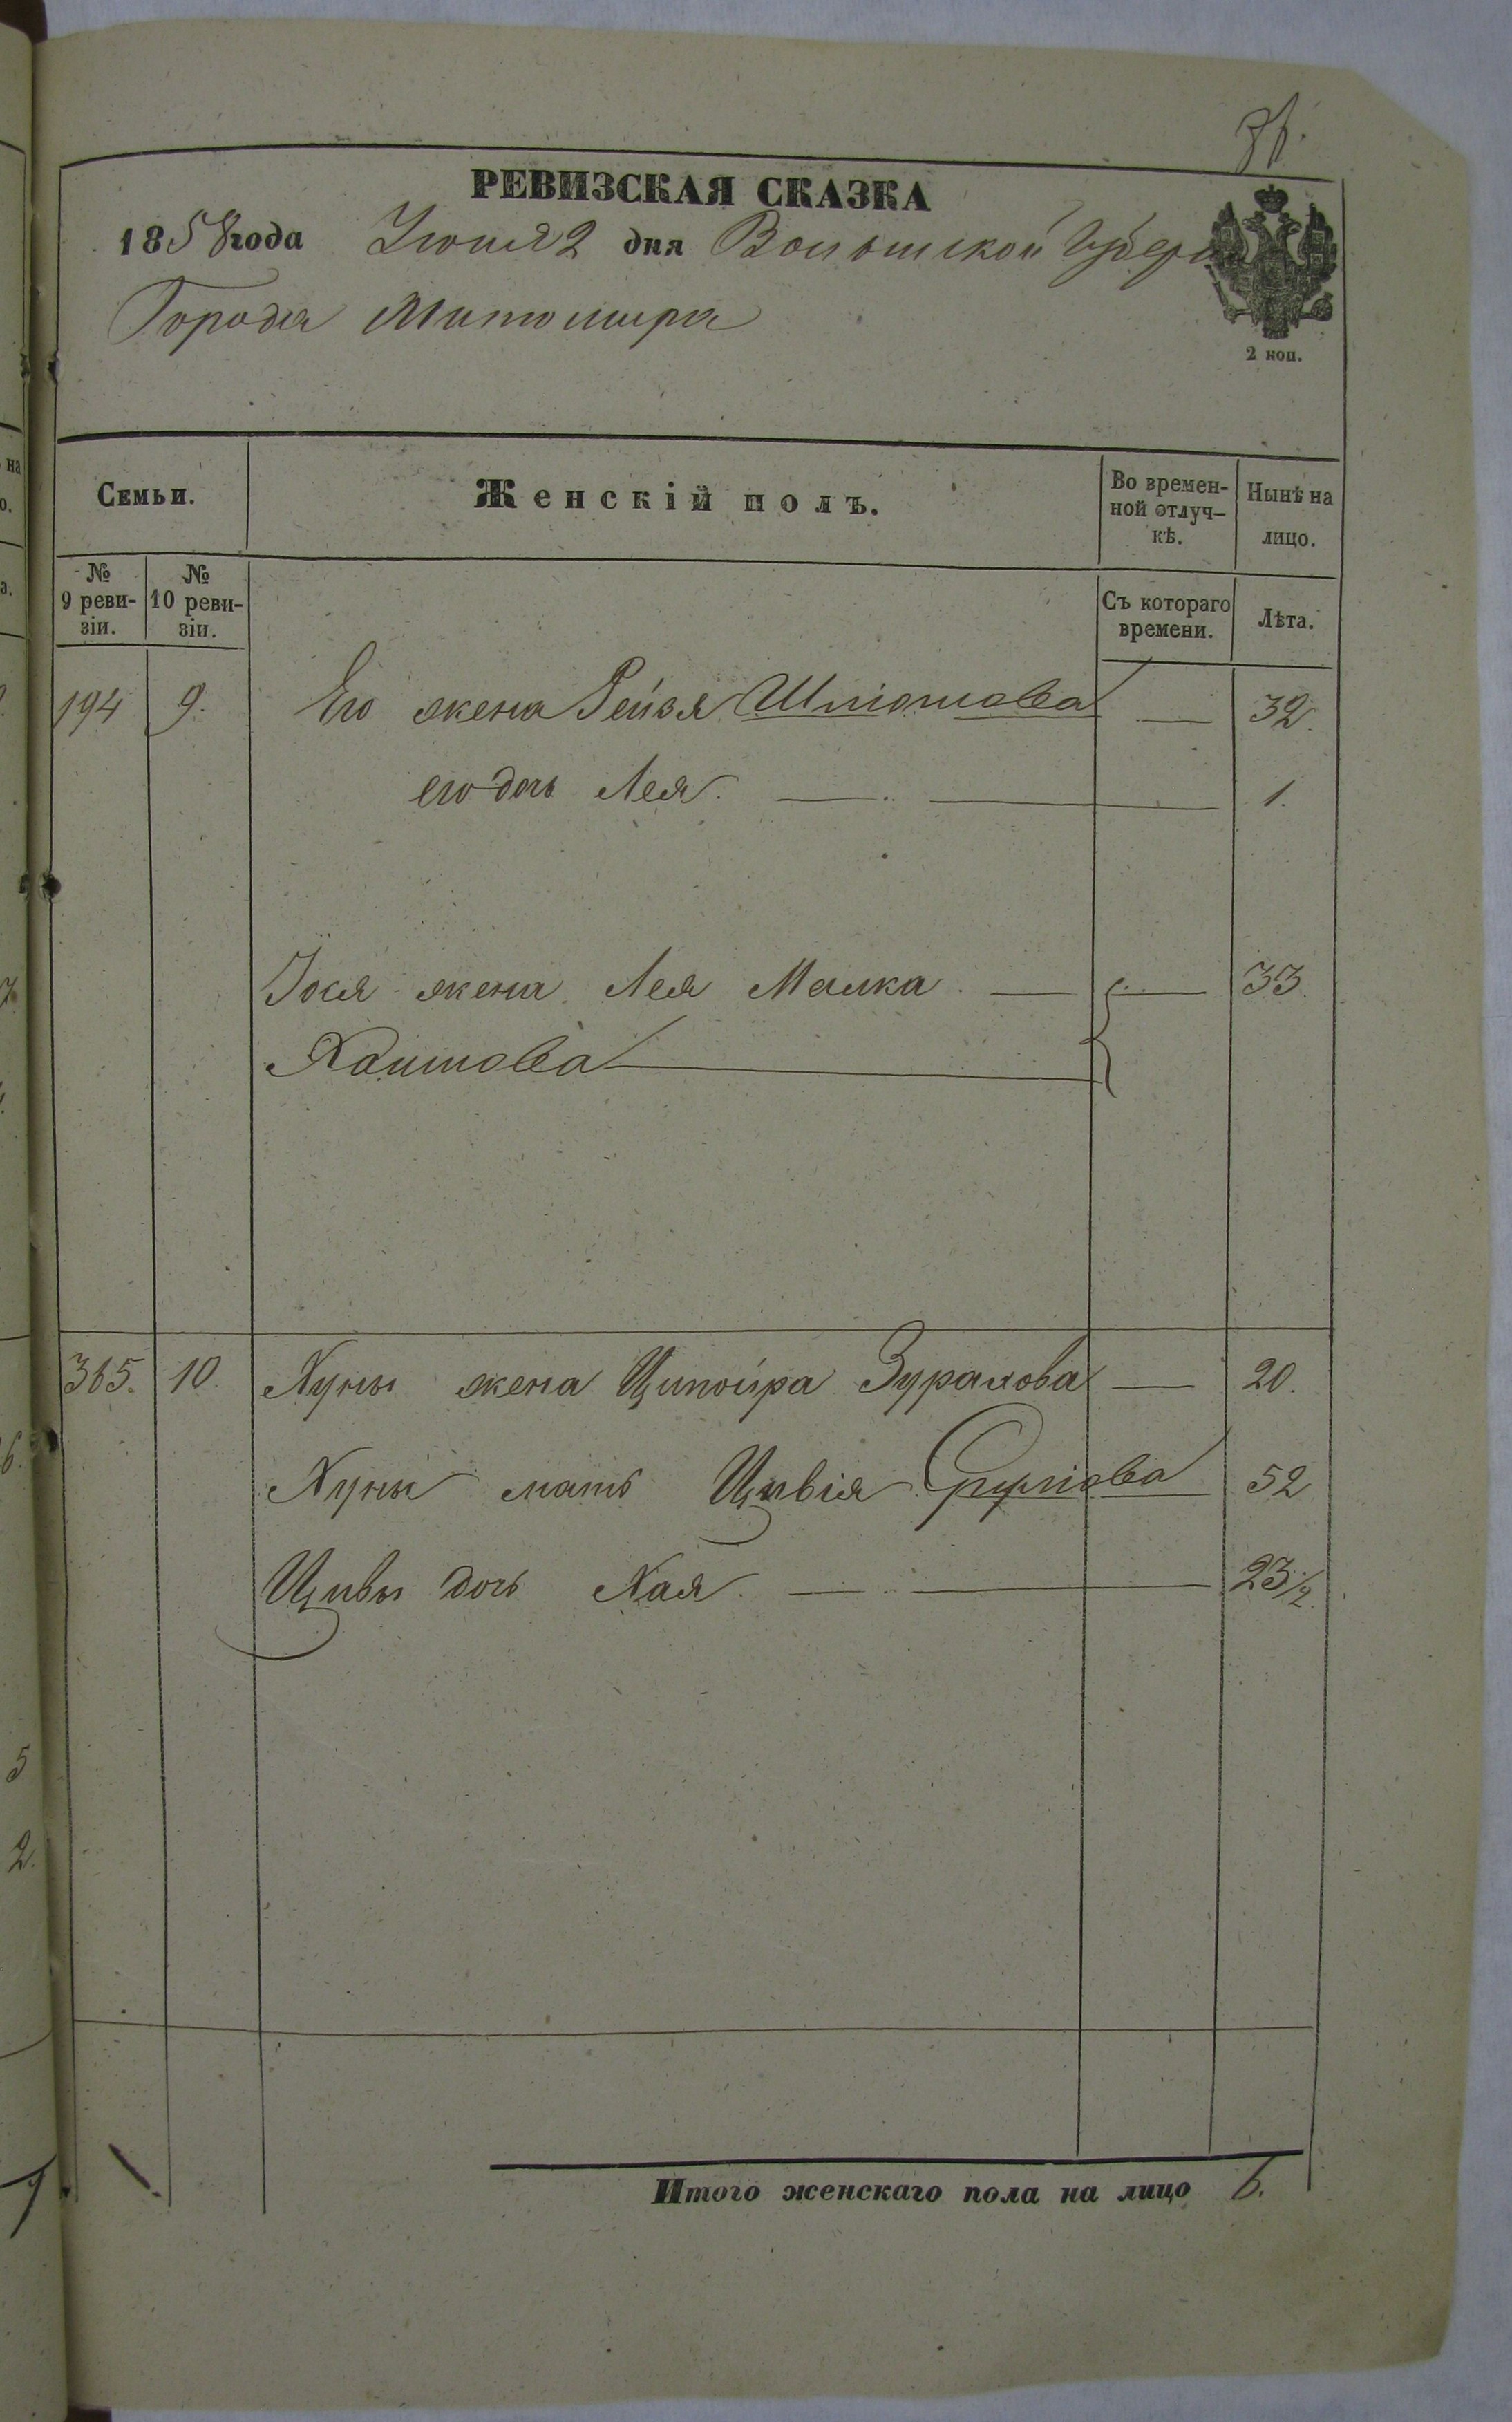 РЕВИЗСКАЯ СКАЗКА
1858 года Июня 2 дня Волынской Губер
Города Житомира
2 коп.
Семьи. Женскій полъ. Во времен-ной отлуч-кѣ. Нынѣ на лицо.
№ 9 реви-зіи. № 10 реви-зіи. Съ котораго времени. Лѣта.
194 9. Его жена Рейзя Шліомова — 32.
его дочь Лея. — 1.
Іося жена Лея Малка — 33.
Хаимова
365. 10. Хуны жена Ципойра Зурахова — 20.
Хуны мать Цивія Сруліова 52
Цивы дочь Хая. — 23 1/2.
Итого женскаго пола на лицо 6.